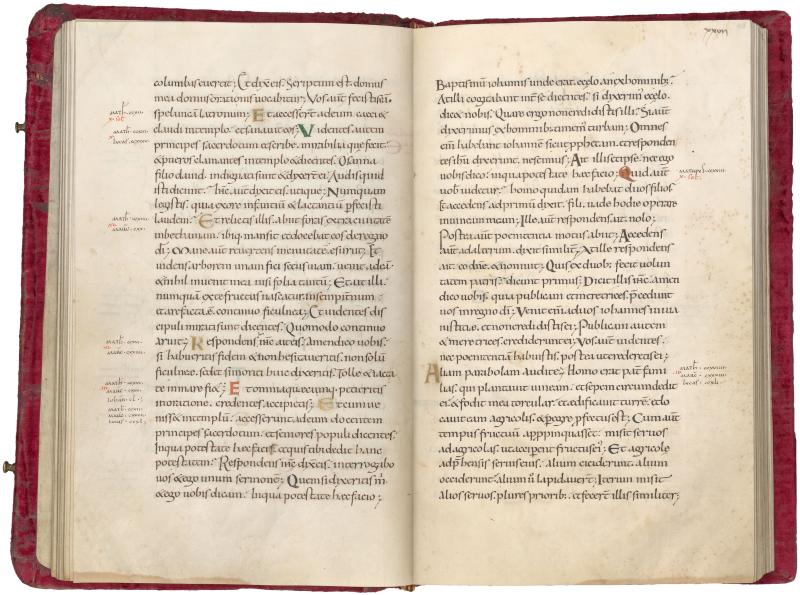 columbas euertit; Et dix eis. Scriptum est. domus
mea domus orationis uocabitur; Vos aut fecistis eā
speluncā latronum; Et accesserunt ad eum caeci &
claudi in templo. et sanauit eos; Videntes autem
principes sacerdotum et scribe. mirabilia que fecit.
& pueros clamantes in templo & dicentes. Osanna
filio dauid. indignati sunt & dixer ei; Audis quid
isti dicunt. ihc aut dix eis. utique; Numquam
legistis. quia ex ore infantiū & lactantiū perfecisti
laudem; Et relictis illis. abiit foras extra ciuitatē
in bethaniam. ibiq; mansit. et docebat eos de regno
di; Mane aut reuertens in ciuitatē. esuriit; Et
uidens arborem unam fici secus uiam. uenit ad eā.
& nihil inuenit in ea nisi folia tantū; Et ait illi.
numquā ex te fructus nascatur. in sempiternum.
et arefacta ē continuo ficulnea; Et uidentes dis
cipuli mirati sunt dicentes. Quomodo continuo
aruit; Respondens ihc ait eis. amen dico uobis.
si habueritis fidem & non hesitaueritis. non solū
de ficulnea facietis. sed et si monti huic dixeritis. Tolle & iacta
te in mare fiet; Et omnia quecumq; petieritis
in oratione. credentes accipietis; Et cum ue
nisset in templū. accesserunt ad eum docentem
principes sacerdotum. et seniores populi dicentes.
In qua potestate haec facis. et quis tibi dedit hanc
potestatem; Respondens ihc dix eis. interrogabo
uos & ego unum sermonē; Quem si dixeritis m
& ego uobis dicam. In qua potestate haec facio;
Baptismū iohannis unde erat. e celo. an ex hominib;
At illi cogitabant int se dicentes. si dixerim e celo.
dicet nobis. Quare ergo non credidistis illi; Si aut
dixerimus ex hominib. timem turbam; Omnes
em habebant iohannē sicut pphetam. et responden
tes ihu dixerunt. nescimus; Ait illis et ipse. nec ego
uobis dico. in qua potestate haec facio; Quid aut
uob uidetur. homo quidam habebat duos filios
Et accedens ad primū dixit. fili. uade hodie operare
in uineam meam; Ille aut respondens ait. nolo;
Postea aut poenitentia motus abiit; Accedens
aut ad alterum. dixit similit; At ille respondens
ait. eo dne. & non iuit; Quis ex duob; fecit uolun
tatem patris; dicunt primus; Dicit illis ihc. amen
dico uobis. quia publicani et meretrices. pcedent
uos in regno di; Venit em ad uos iohannes in uia
iustitiae. et non credidistis ei; Publicani autem
& meretrices. crediderunt ei; Vos aut uidentes.
nec poenitentiā habuistis. postea ut crederetis ei;
Aliam parabolam audite; Homo erat pat fami
lias. qui plantauit uineam. et sepem circumdedit
ei. & fodit in ea torcular. et edificauit turrē. et lo
cauit eam agricolis. & pegre pfectus est; Cum aut
tempus fructuū appropinquasset. misit seruos
ad agricolas. ut acciperent fructus ei; Et agricole
adphensis seruis eius. alium ceciderunt. alium
occiderunt. alium u lapidauert; Iterum misit
alios seruos. plures priorib;. et fecert illis similiter;